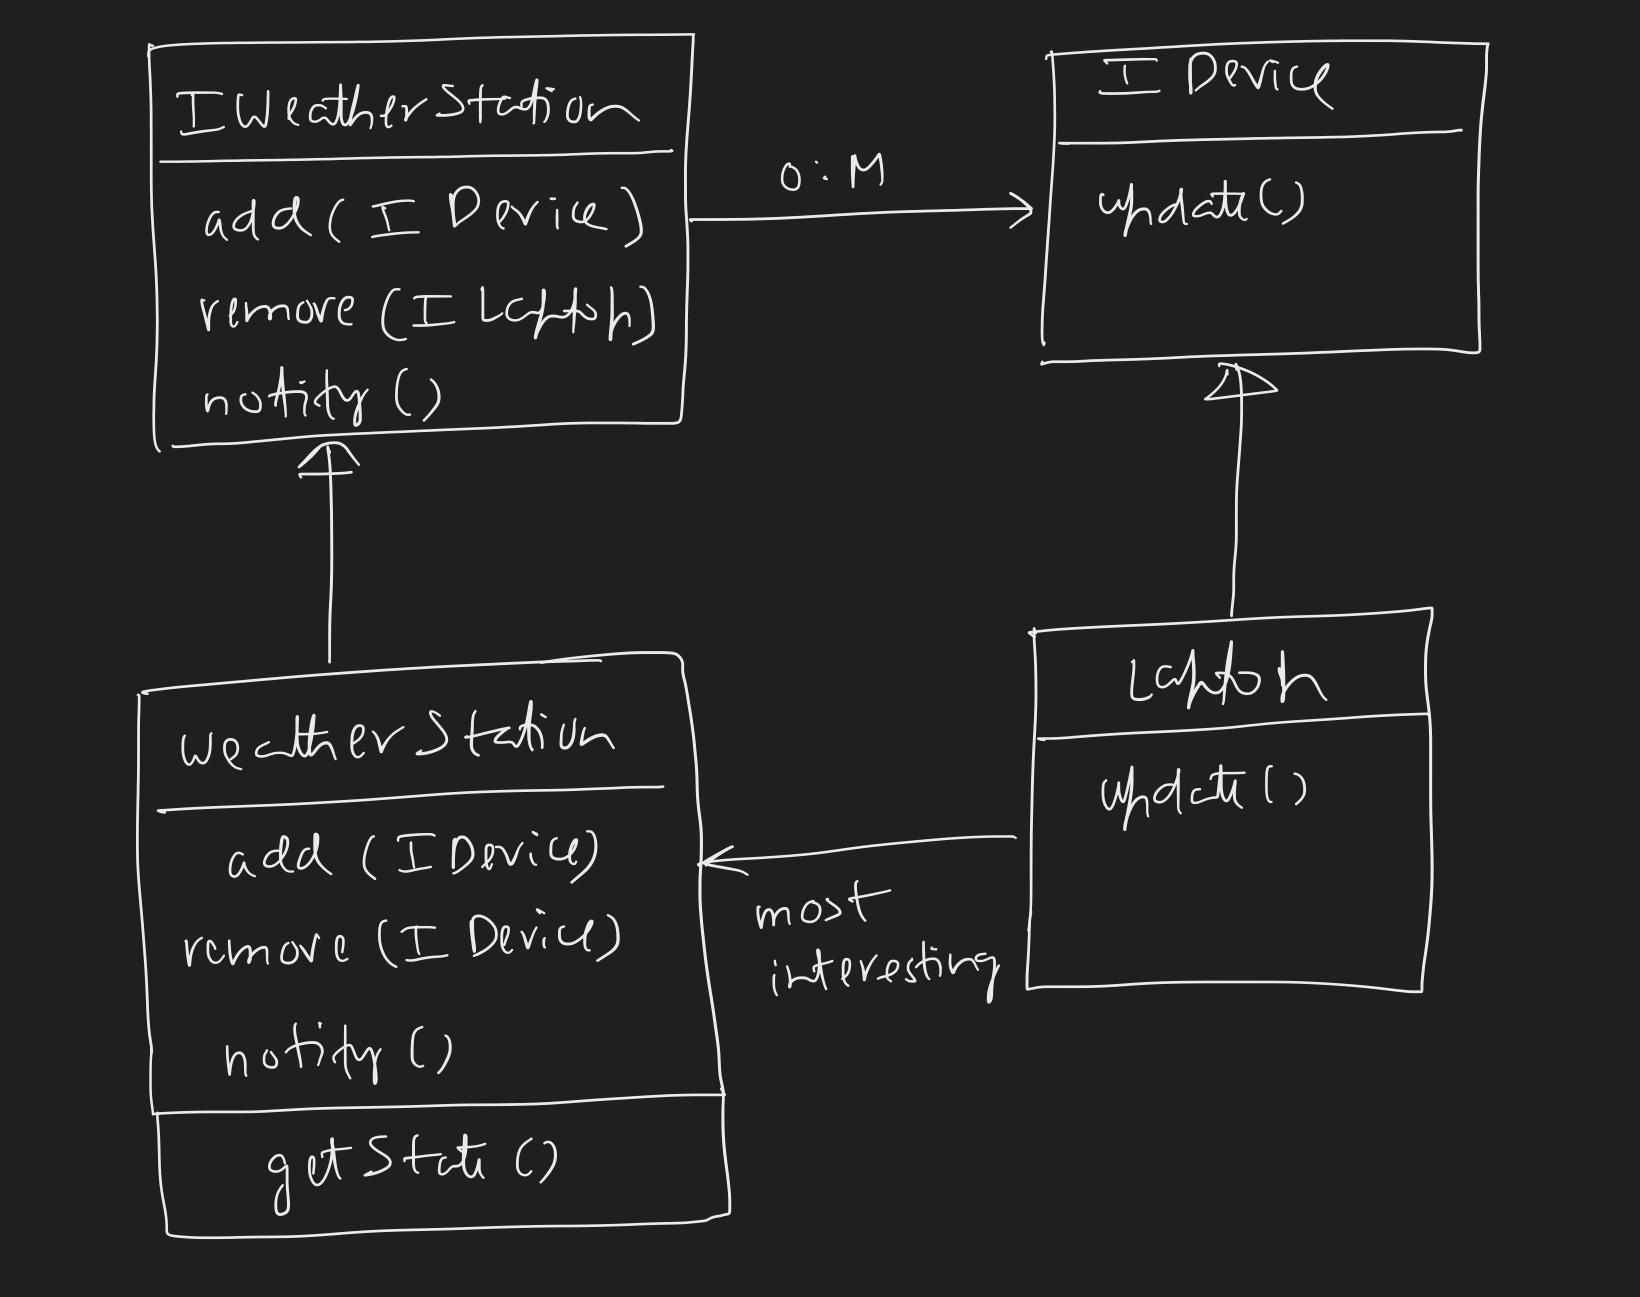 IWeatherStation
add(IDevice)
remove(ILaptop)
notify()
0:M
IDevice
update()
WeatherStation
add(IDevice)
remove(IDevice)
notify()
getState()
most
interesting
Laptop
update()